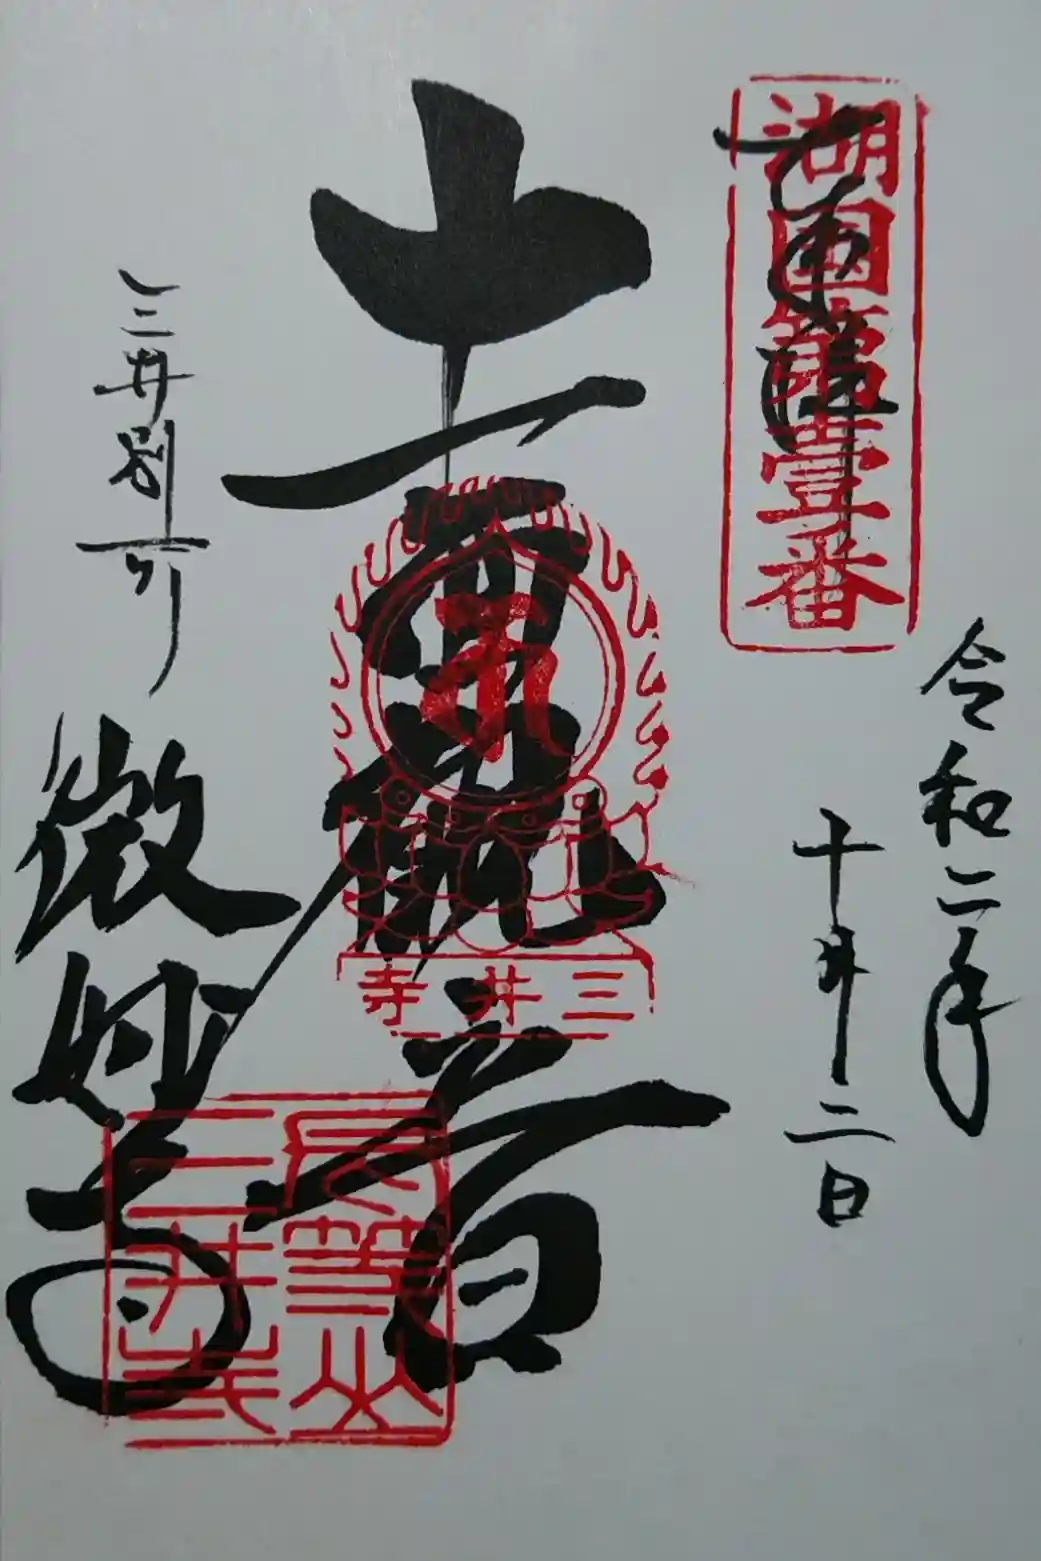 湖國第壹番
奉拝
令和二年
十月二日
十一面観音
三井寺
長等山
三井寺
三井別所
微妙寺